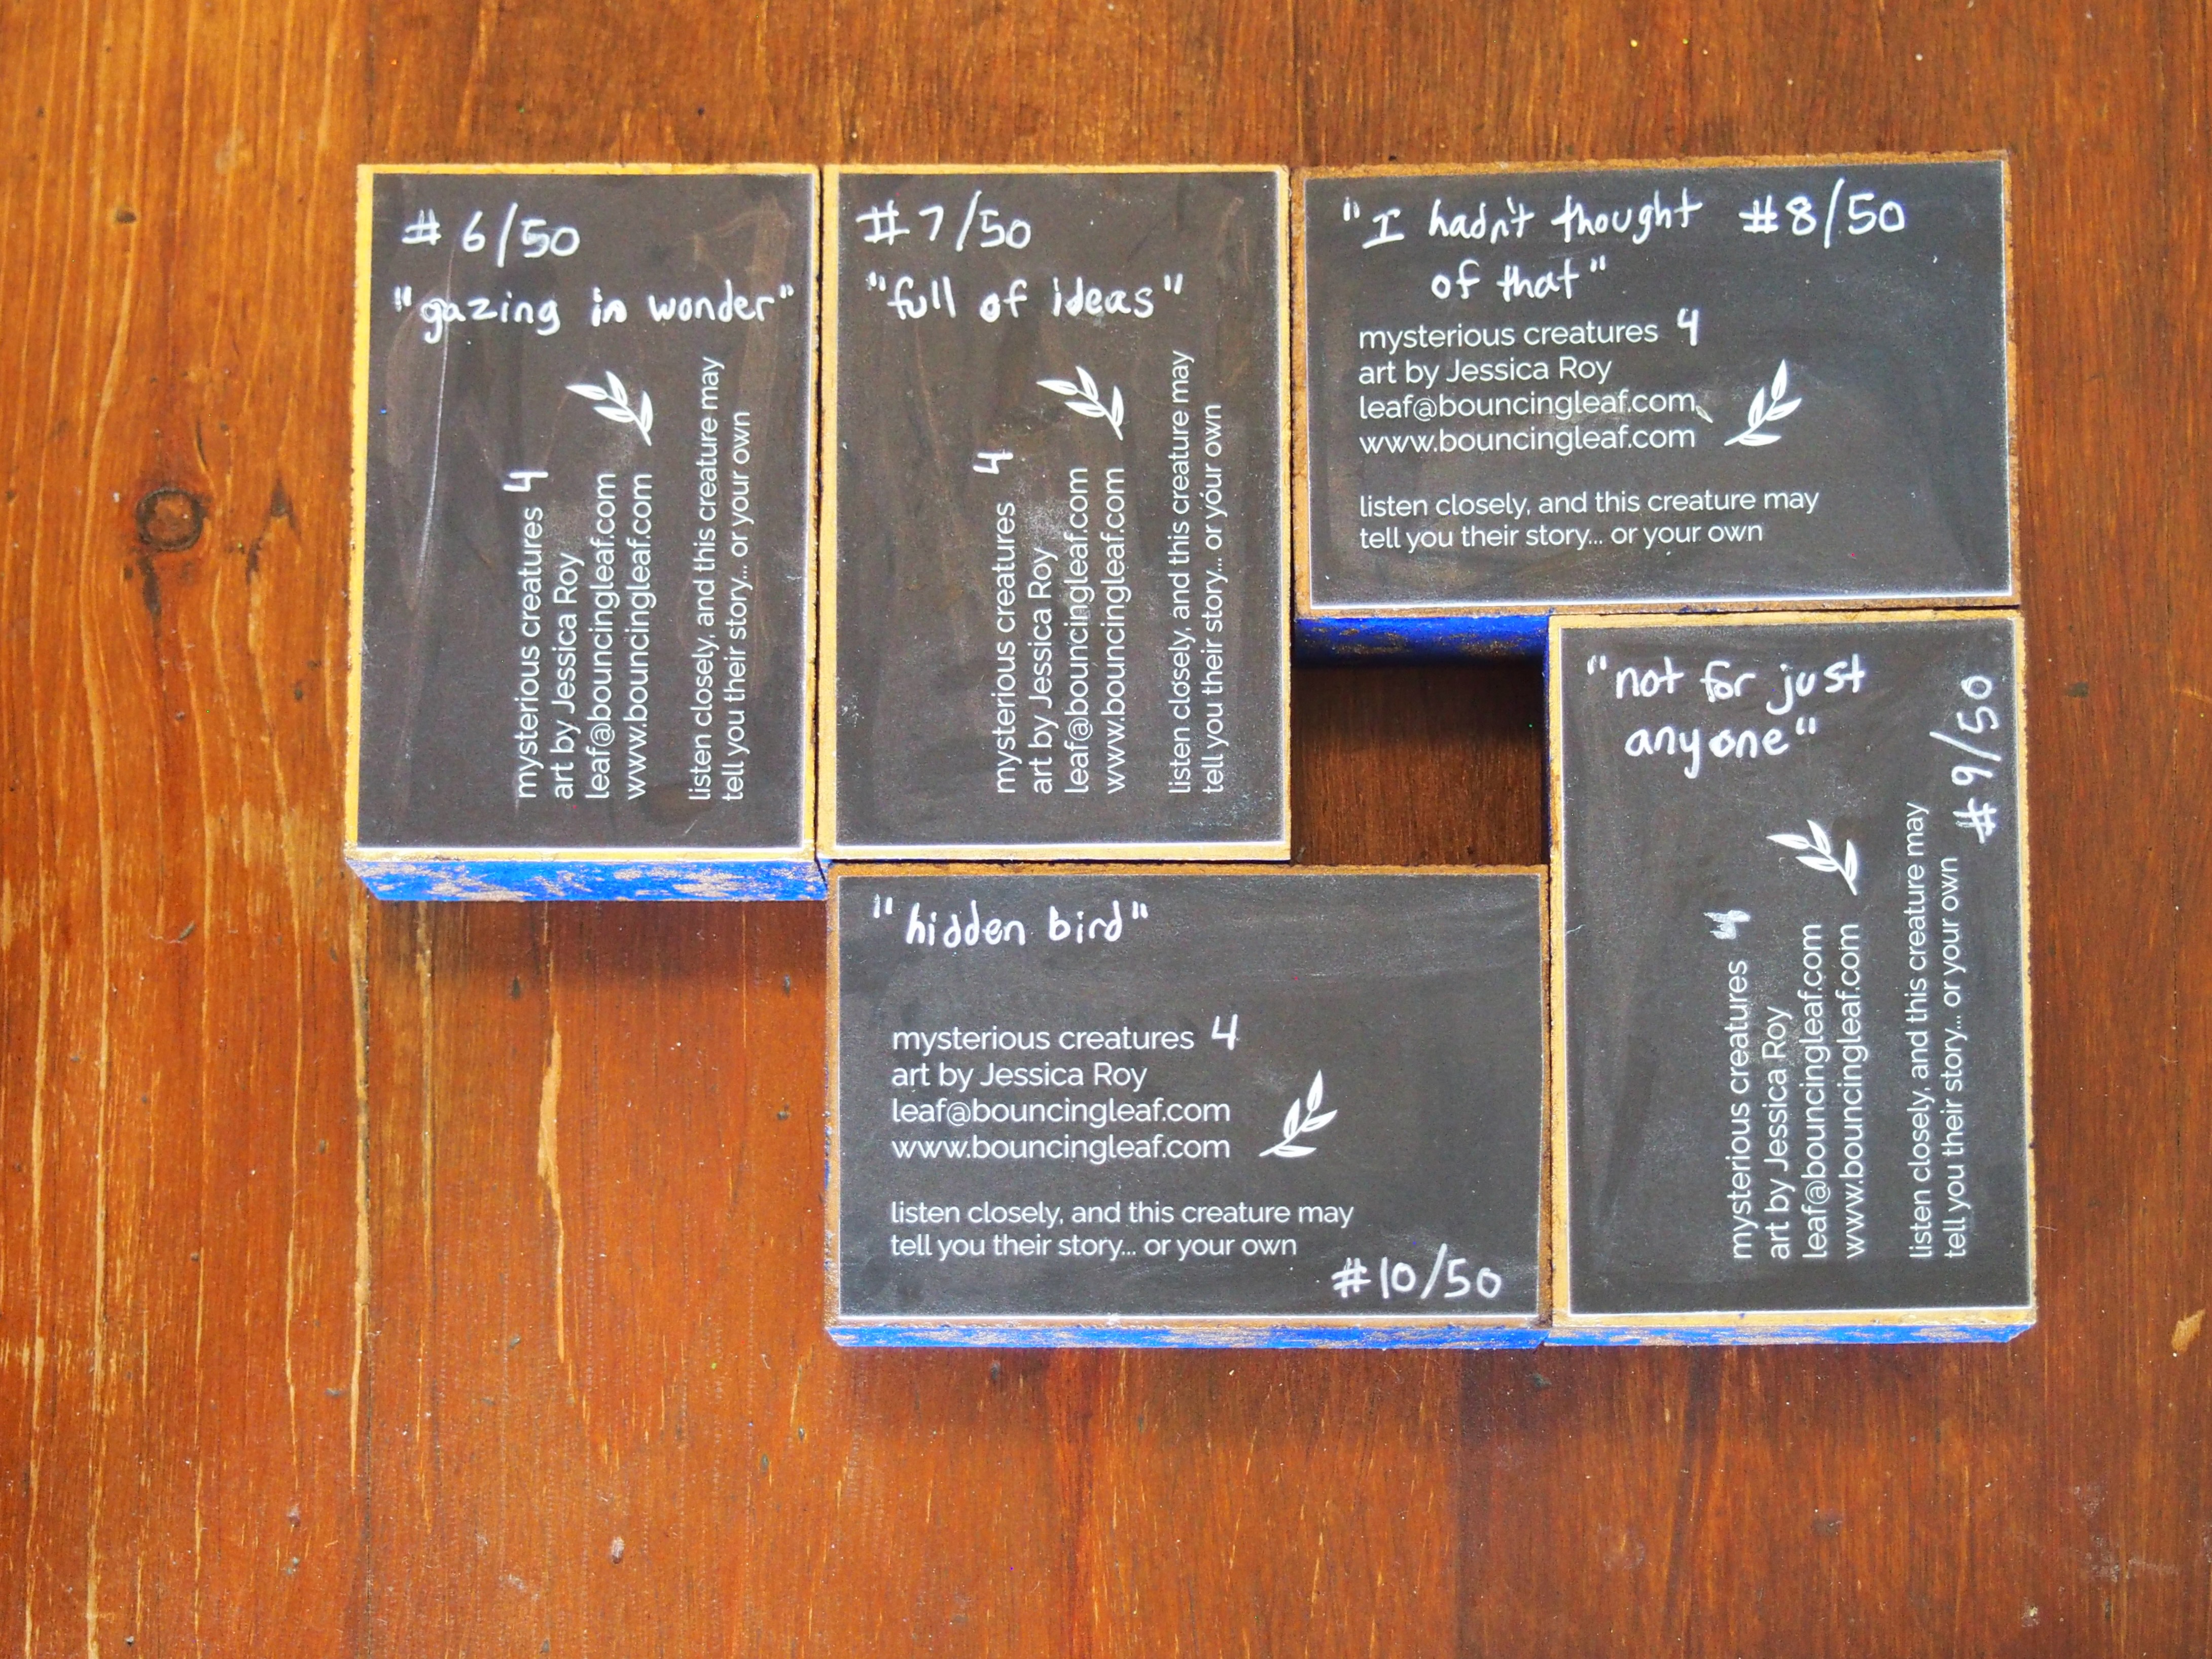 #6/50
"gazing in wonder"
mysterious creatures 4
art by Jessica Roy
leaf@bouncingleaf.com
www.bouncingleaf.com
listen closely, and this creature may
tell you their story... or your own
#7/50
"full of ideas"
mysterious creatures 4
art by Jessica Roy
leaf@bouncingleaf.com
www.bouncingleaf.com
listen closely, and this creature may
tell you their story... or your own
"I hadn't thought #8/50
of that"
mysterious creatures 4
art by Jessica Roy
leaf@bouncingleaf.com
www.bouncingleaf.com
listen closely, and this creature may
tell you their story... or your own
"not for just
anyone"
#9/50
mysterious creatures 4
art by Jessica Roy
leaf@bouncingleaf.com
www.bouncingleaf.com
listen closely, and this creature may
tell you their story... or your own
"hidden bird"
mysterious creatures 4
art by Jessica Roy
leaf@bouncingleaf.com
www.bouncingleaf.com
listen closely, and this creature may
tell you their story... or your own
#10/50